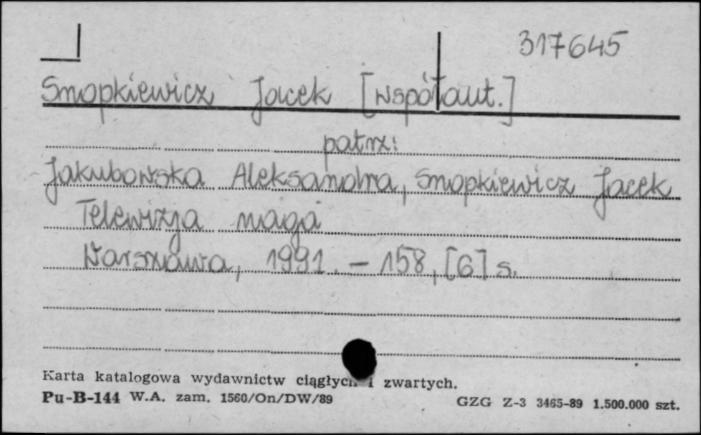 317645
Snopkiewicz Jacek [współaut.]
patrz:
Jakubowska Aleksandra, Snopkiewicz Jacek
Telewizja naga
Warszawa, 1991. - 158, [6] s.
Karta katalogowa wydawnictw ciągłych i zwartych.
Pu-B-144 W.A. zam. 1560/On/DW/89 GZG Z-3 3465-89 1.500.000 szt.